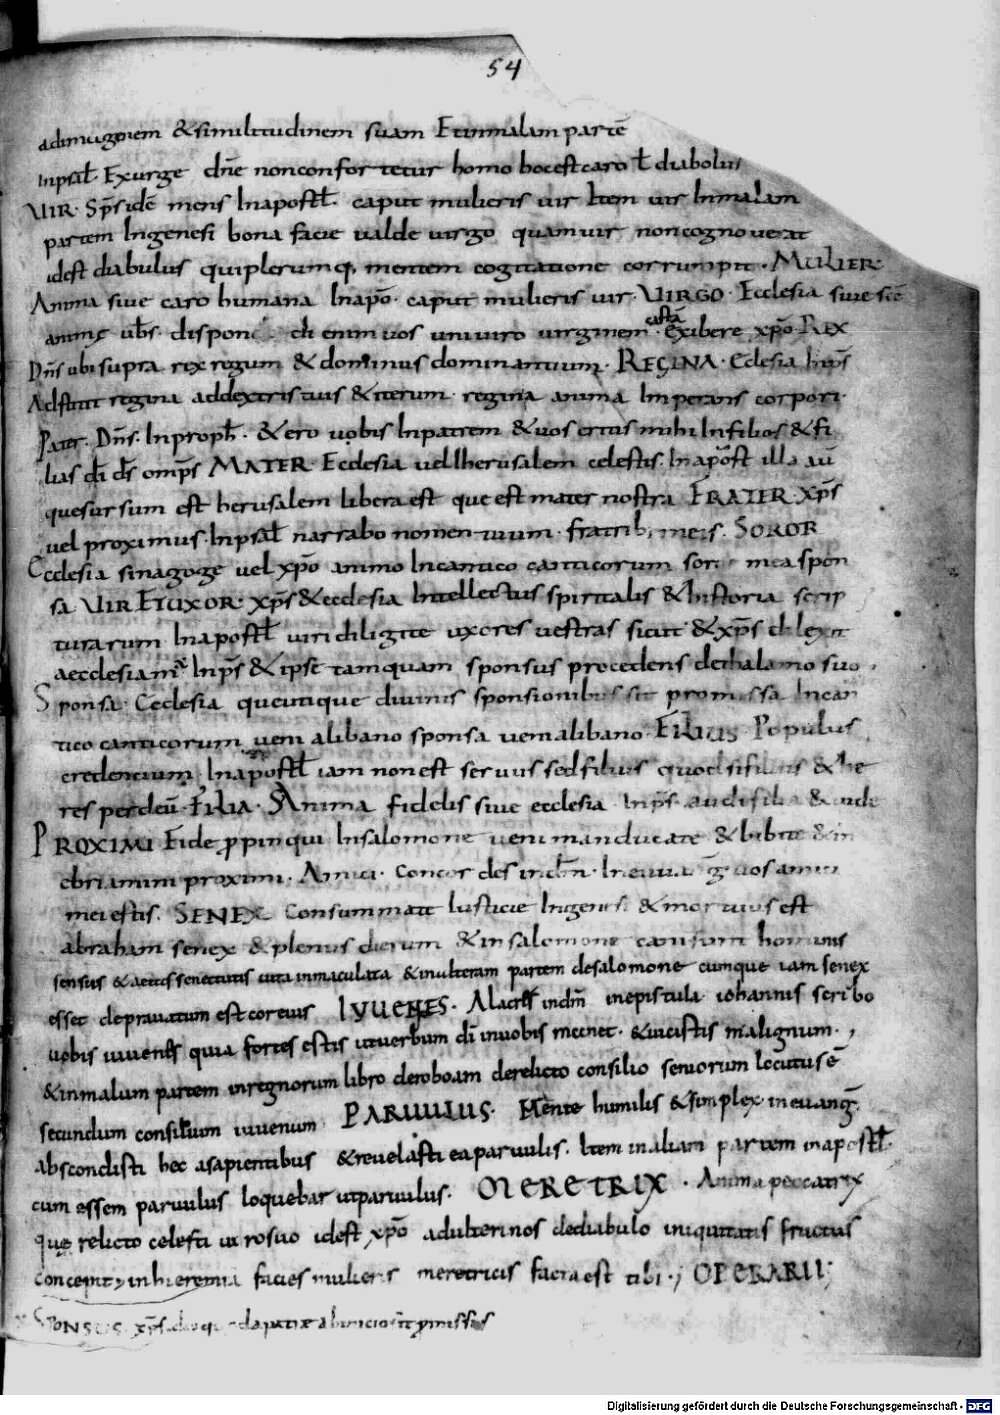 54
adimaginem & similitudinem suam Et inmalam partē
Inpsał. Exurge dn̄e nonconfortetur homo hocest caro ł diabolus
VIR. Sp̄s idē mens Inapostł. caput mulieris vir Item vir Inmalam
partem Ingenesi bona facie valde virgo quamvir noncognoverat
idest diabulus quiplerumq; mentem cogitatione corrumpit. MULIER.
Anima sive caro humana Inap̄o. caput mulieris vir. VIRGO. Ecclesia sive
enim vos univiro virginem castā exibere xp̄o REX
Dn̄s ubi supra rex regum & dominus dominantium. REGINA. Eclesia Inp̄s
Adstitit regina addextris tuis & iterum. regina anima Imperans corpori.
Pater. Dn̄s. Inproph̄. & ero vobis Inpatrem & vos eritis mihi Infilios & fi
lias dī dn̄s omp̄s MATER. Ecclesia vel Iherusalem celestis. Inapost illa aū
quesursum est herusalem libera est que est mater nostra FRATER. xp̄s
vel proximus. Inpsał narrabo nomen tuum fratrib; meis. SOROR
Ecclesia sinagoge vel xp̄o animo Incantico canticorum soror mea spon
sa VIR ET UXOR. xp̄s & ecclesia Intellectus spiritalis & historia scrip
turarum Inapostł viri diligite uxores vestras sicut & xp̄s dilexit
aecclesiam Inp̄s & ipse tamquam sponsus procedens dethalamo suo.
Sponsa. Ecclesia queutique divinis sponsionibus sit promissa Incan
tico canticorum veni alibano sponsa veni alibano. FILIUS Populus
credencium. Inapostł iam non est servus sed filius quod si filius & he
res perdeū. FILIA. Anima fidelis sive ecclesia Inp̄s audi filia & vide
PROXIMI Fide propinqui Insalomone veni manducate & bibite & in
ebriamini proximi. Amici. Concordes indn̄m. Inevang vos amici
mei estis. SENEX Consummate Iusticie Ingenesi & mortuus est
abraham senex & plenus dierum & insalomone cani sunt hominis
sensus & aetas senectutis vita inmaculata & inulteram partem desalomone cumque iam senex
esset depravatum est cor eius IVVENES. Alacres indn̄m inepistula iohannis scribo
vobis iuvenes quia fortes estis utverbum dī invobis mecnet. & vicistis malignum.
& inmalum partem inregnorum libro deroboam derelicto consilio seniorum locutus ē
secundum consilium iuvenum PARVULUS. Mente humilis & simplex inevang.
abscondisti hec asapientibus & revelasti ea parvulis. Item inaliam partem inapostł.
cum essem parvulus loquebar utparvulus. MERETRIX. Anima peccatrix
que relicto celesti viro suo idest xp̄o adulterinos dediabulo iniquitatis fructus
concepit inhieremia facies mulieris meretricis facta est tibi. OPERARII;
SPONSUS. xp̄s
Digitalisierung gefördert durch die Deutsche Forschungsgemeinschaft - DFG